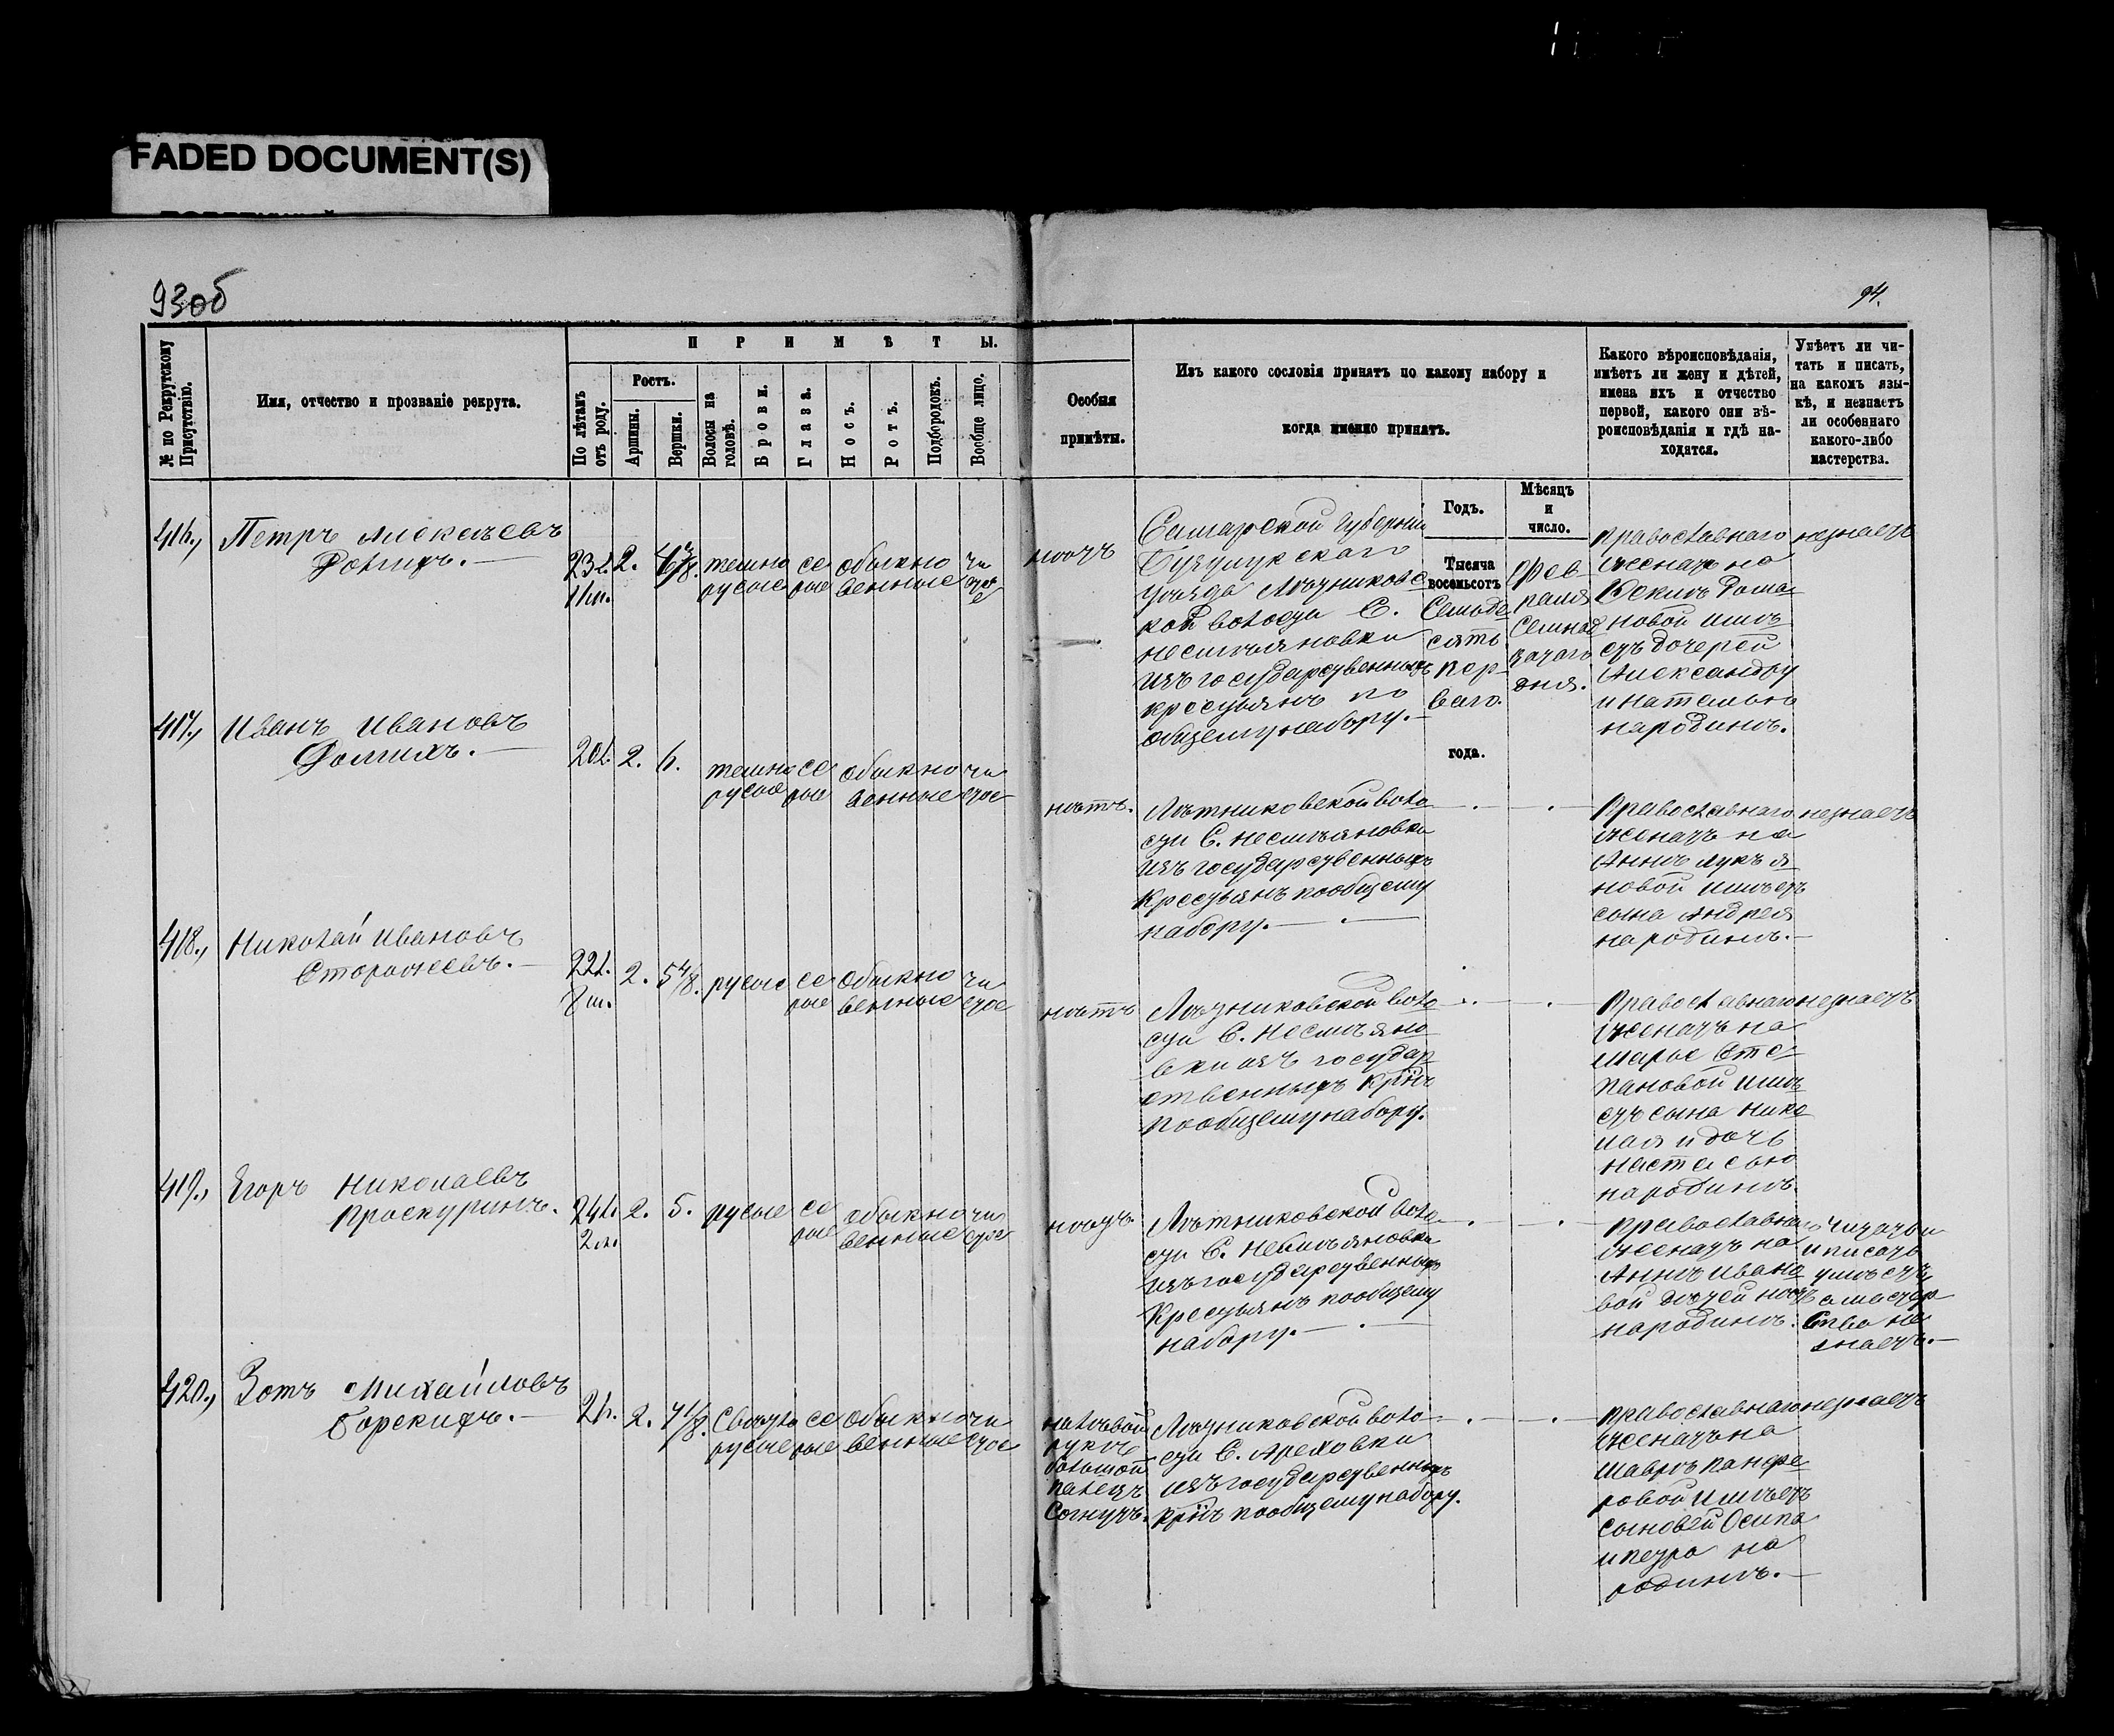 FADED DOCUMENT(S)
93об
94.
№ по Рекрутскому Присутствію.
Имя, отчество и прозваніе рекрута.
П Р И М Ѣ Т Ы.
По лѣтамъ отъ роду.
Ростъ.
Аршины.
Вершки.
Волосы на головѣ.
Брови.
Глаза.
Носъ.
Ротъ.
Подбородокъ.
Вообще лицо.
Особыя
примѣты.
Изъ какого сословія принятъ по какому набору и
когда именно принятъ.
Какого вѣроисповѣданія,
имѣетъ ли жену и дѣтей,
имена ихъ и отчество
первой, какого они вѣ-
роисповѣданія и гдѣ на-
ходятся.
Умѣетъ ли чи-
тать и писать,
на какомъ язы-
кѣ, и незнаетъ
ли особеннаго
какого-либо
мастерства.
Годъ.
Мѣсяцъ
и
число.
416., Петръ Алексѣевъ
23 л. 2.
11 м.
темно се обыкно чи
русые рые венные стое
нѣтъ
Самарской Губерніи
Бузулукскаго
уѣзда Лѣтниковс
кой волости С.
несмѣяновки
изъ государственныхъ
крестьянъ по
общему набору.—
Тысяча
восемьсотъ
Семьде
сять
пер-
ваго.
года.
Фев-
раля
Семнад
цатаго
дня.
православнаго
женатъ на
новой имѣ
етъ дочерей
Александру
и наталью
народинѣ.
незнаетъ
417., Иванъ Ивановъ
20 л. 2. 6.
темно се обыкно чи
русые рые венные стое
нѣтъ.
Лѣтниковской воло
сти С. несмѣяновки
изъ государственныхъ
Крестьянъ пообщему
набору.—
Православнаго
женатъ на
Аннѣ лукья
новой имѣетъ
сына Андрея
народинѣ.—
незнаетъ
418., Николай Ивановъ
Сторожевъ.—
22 л. 2. 5 4/8. русые се обыкно чи
8 м. рые венные стое
нѣтъ
Лѣтниковской воло
сти С. Несмѣяно
вки изъ государ
ственныхъ крнъ
пообщему набору.
Православнаго
женатъ на
марье Сте
пановой имѣ
етъ сына нико
лая и дочь
настасью
народинѣ.
незнаетъ
419., Егоръ Николаевъ
Проскуринъ.
24 л. 2. 5. русые се обыкно чи
2 м. рые венные стое
нѣтъ.
Лѣтниковской воло
сти С. Несмѣяновки
изъ государственныхъ
Крестьянъ пообщему
набору.—
православнаго
женатъ на
Аннѣ Ивано
вой дѣтей нѣтъ
народинѣ.
Читать и
и писать
умѣетъ
а мастер
ства не
знаетъ.—
420., Зотъ Михайловъ
Борскихъ.—
2. 7 1/8. Свѣтло се обыкно чи
русые рые венные стое
налѣвой
рукѣ
большой
палецъ
согнутъ.
Лѣтниковской воло
сти С. Ореховки
изъ государственныхъ
крнъ пообщему набору.
православнаго
женатъ на
Маврѣ Панфе
ровой имѣетъ
сыновей Осипа
и петра на
родинѣ.—
незнаетъ